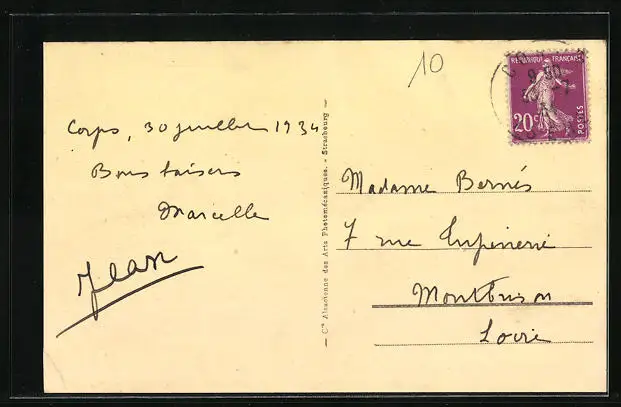 10
REPUBLIQUE FRANÇAISE
20c
POSTES
Corps, 30 juillet 1934
Bons baisers
Marcelle
Jean
Cie Alsacienne des Arts Photomécaniques. - Strasbourg
Madame Bernés
7 rue
Montbrison
Loire